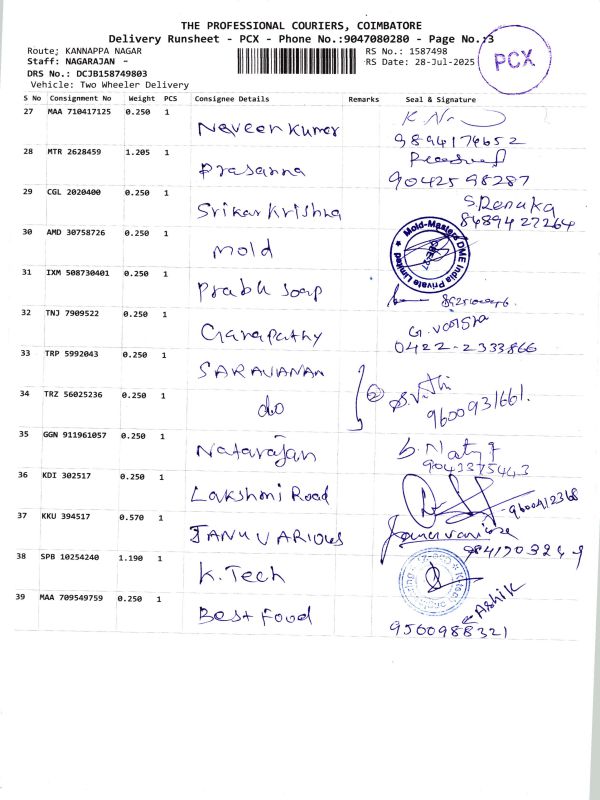 THE PROFESSIONAL COURIERS, COIMBATORE
Delivery Runsheet - PCX - Phone No.:9047080280 - Page No.:3
Route; KANNAPPA NAGAR RS No.: 1587498
Staff: NAGARAJAN - RS Date: 28-Jul-2025
DRS No.: DCJB158749803
Vehicle: Two Wheeler Delivery
PCX
S No Consignment No Weight PCS Consignee Details Remarks Seal & Signature
27 MAA 710417125 0.250 1
Naveen Kumar
9894174652
28 MTR 2628459 1.205 1
Prasanna
9042598287
29 CGL 2020400 0.250 1
Srikar Krishna
S.Renuka
8489427264
30 AMD 30758726 0.250 1
mold
Mold-Masters DME India Private Limited
31 IXM 508730401 0.250 1
Prabu soap
32 TNJ 7909522 0.250 1
Ganapathy
0422-2333866
33 TRP 5992043 0.250 1
SARAVANAN
34 TRZ 56025236 0.250 1
do
2
9600931661.
35 GGN 911961057 0.250 1
Natarajan
9043375443
36 KDI 302517 0.250 1
Lakshmi Road
-9600412368
37 KKU 394517 0.570 1
JANU VARIOUS
9841703249
38 SPB 10254240 1.190 1
K.Tech
39 MAA 709549759 0.250 1
Best Food
Ashik
9500988321